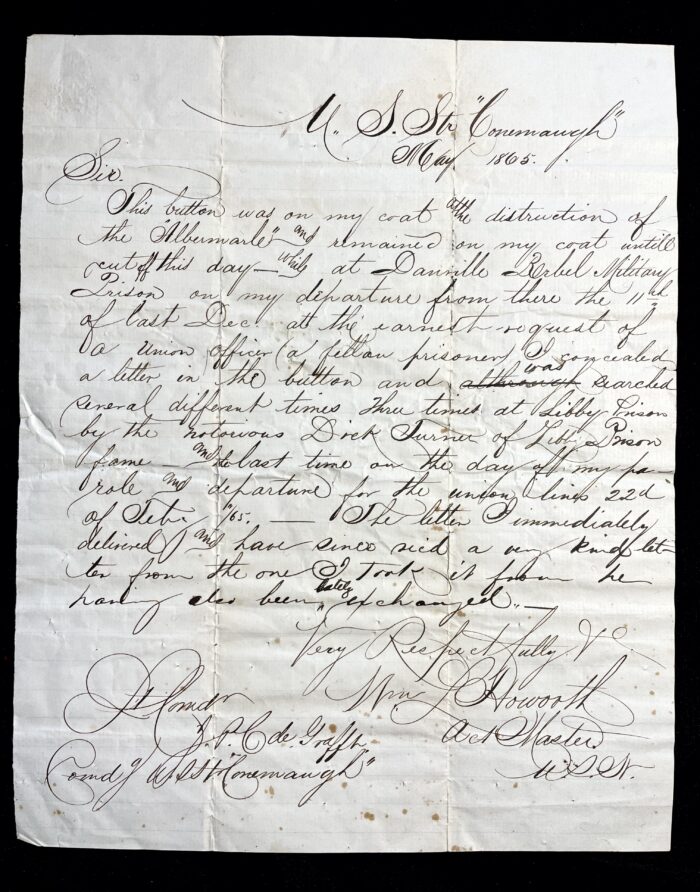 U. S. Str "Conemaugh"
May 1865.
Sir.
This button was on my coat at the distruction of
the "Albermarle" and remained on my coat untill
cut off this day — while at Danville Rebel Military
Prison on my departure from there the 11th
of last Dec. at the earnest request of
a Union officer (a fellow prisoner) I concealed
a letter in the button and was searched
several different times three times at Libby Prison
by the notorious Dick Turner of Libby Prison
fame and the last time on the day of my pa-
role and departure for the union lines 22d
of Feb. /65. — The letter I immediately
delivered and have since rec'd a very kind let-
ter from the one I took it from he
having also been lately exchanged. —
Very Respectfully &c
Wm L Howorth
Act Master
U.S.N.
Lt Comdr
J. P. C de Graffh
Comdg U.S Str "Conemaugh"